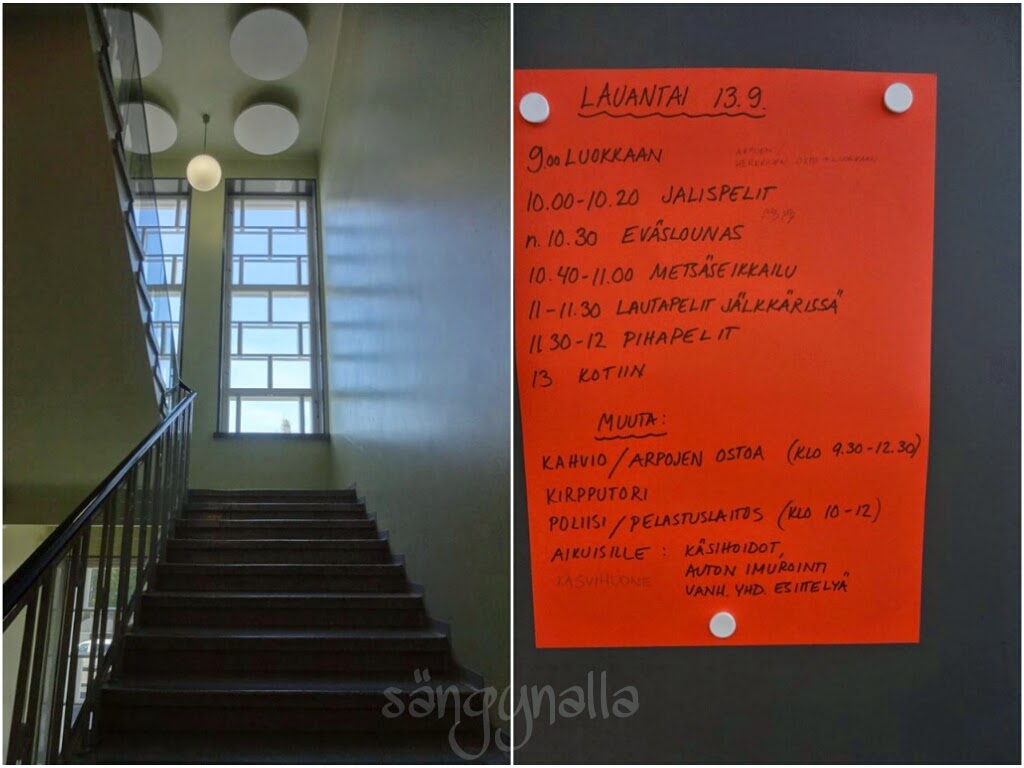 LAUANTAI 13.9.
9.00 LUOKKAAN
10.00-10.20 JALISPELIT
n. 10.30 EVÄSLOUNAS
10.40-11.00 METSÄSEIKKAILU
11-11.30 LAUTAPELIT JÄLKKÄRISSÄ
11.30-12 PIHAPELIT
13 KOTIIN
MUUTA:
KAHVIO/ARPOJEN OSTOA (KLO 9.30-12.30)
KIRPPUTORI
POLIISI/PELASTUSLAITOS (KLO 10-12)
AIKUISILLE: KÄSIHOIDOT,
AUTON IMUROINTI
KASVIHUONE VANH. YHD. ESITTELYÄ
sängynalla